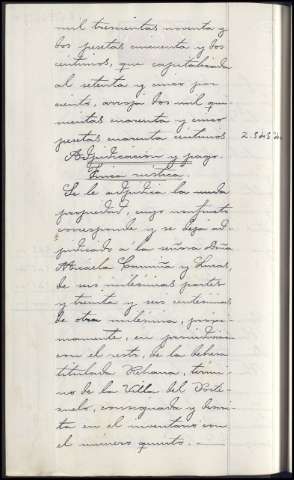 mil trescientas noventa y
dos pesetas cincuenta y dos
centimos, que capitalizada
al setenta y cinco por
ciento, arroja dos mil qui-
nientas cuarenta y cinco
pesetas cuarenta centimos
Adjudicacion y pago.
Finca rustica.
Se le adjudica la nuda
propiedad, cuyo usufructo
corresponde y se deja ad-
judicado a la señora Doña
Micaela y
de seis milésimas partes
y treinta y seis centesimas
de otra milésima, proxi-
mamente, en proindiviso
con el resto, de la dehesa
titulada termi-
no de la Villa del
consignada y descri-
ta en el inventario con
el número quinto.